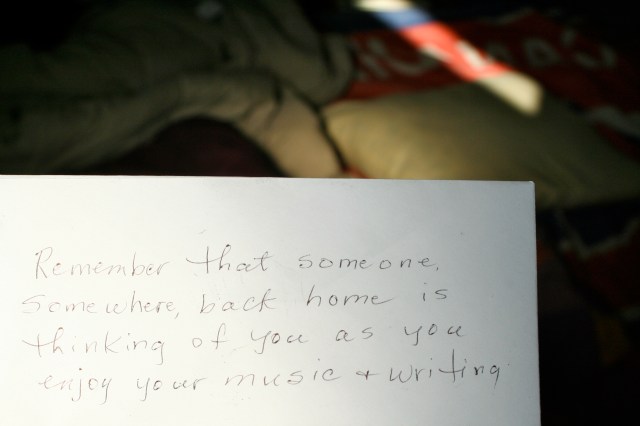 Remember that someone,
somewhere, back home is
thinking of you as you
enjoy your music + writing